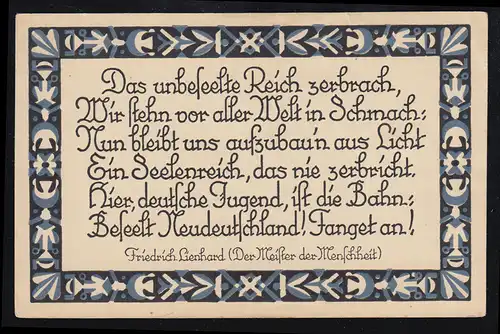 Das unbeſeelte Reich zerbrach,
Wir ſtehn vor aller Welt in Schmach:
Nun bleibt uns aufzubau'n aus Licht
Ein Seelenreich, das nie zerbricht.
Hier, deutſche Jugend, iſt die Bahn:
Beſeelt Neudeutſchland! Fanget an!
Friedrich Lienhard (Der Meiſter der Menſchheit)